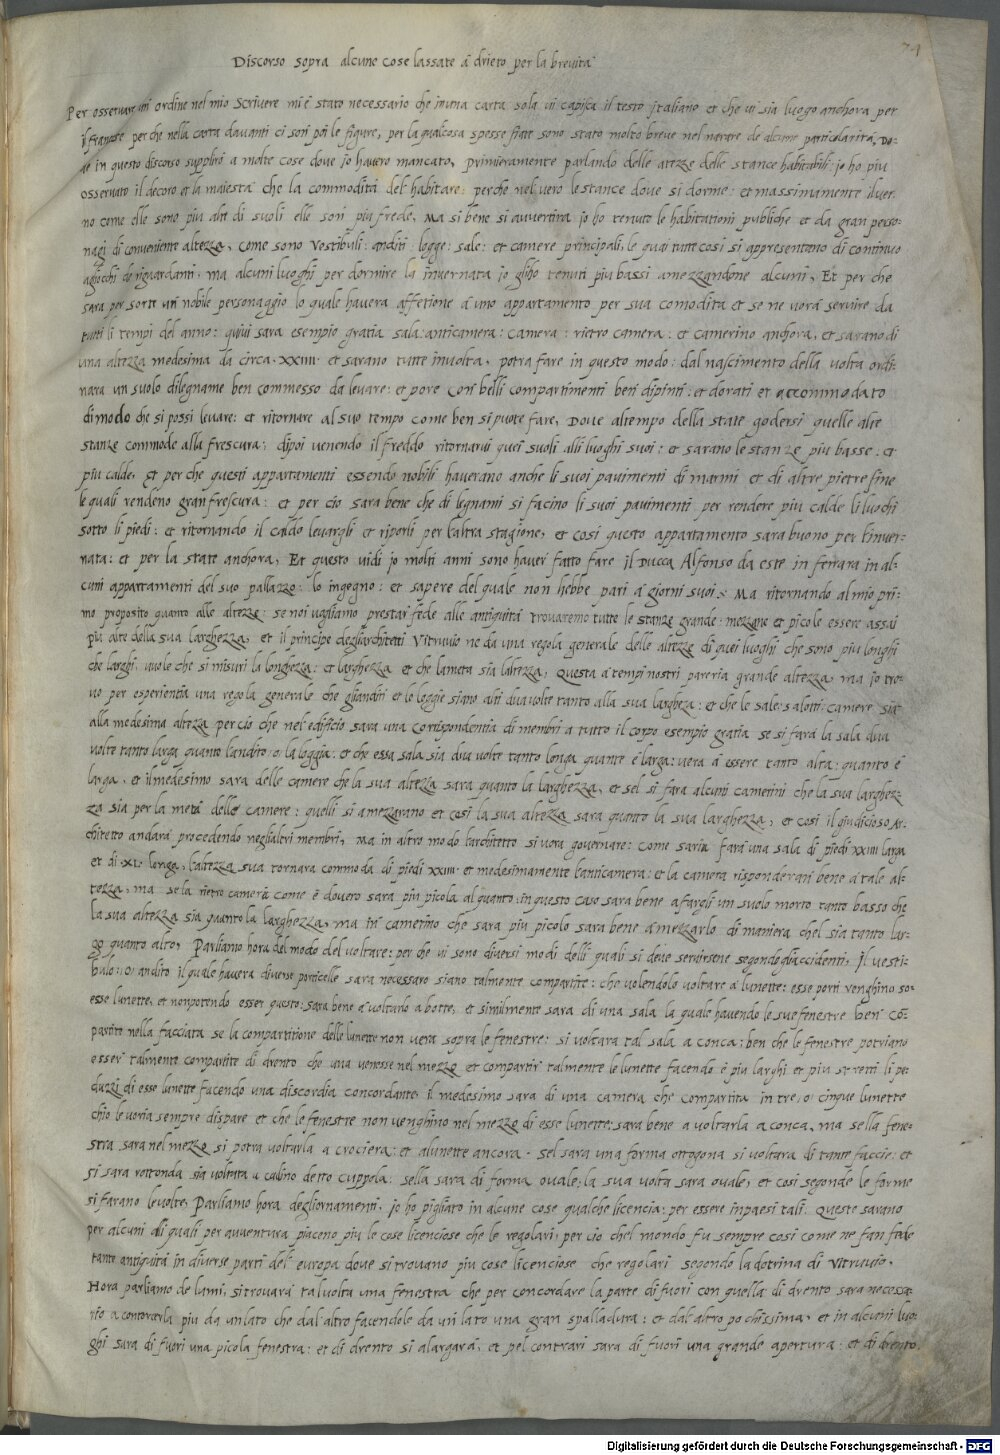 74
Discorso sopra alcune cose lassate á drieto per la brevitá
Per osservare un ordine nel mio scrivere mi é stato necessario che in una carta sola vi capisca il testo italiano et che vi sia luogo anchora per
il francese per che nella carta davanti ci son poi le figure, per la qual cosa spesse fiate sono stato molto breve nel narare de alcune particolarita, Do-
ve in questo discorso suppliró a molte cose dove io havero mancato, primieramente parlando delle altezze delle stance habitabili: io ho piu
osservato il decoro et la maiesta che la commoditá del habitare: perche nel vero le stance dove si dorme: et massimamente il ver-
no come elle sono piu alte di suoli elle son piu frede. Ma si bene si avvertira io ho tenuto le habitationi publiche et da gran perso-
nagi di conveniente altezza, come sono vestibuli: anditi: logge: sale: et camere principali, le quai tutte cosi si appresentano di continuo
agli occhi de riguardanti, ma alcuni luoghi per dormire la invernata io gli ho tenuti piu bassi amezzandone alcuni, Et per che
sara per sorte un nobile personaggio lo quale havera affetione á uno appartamento per sua comodita et se ne vorá servire da
tutti li tempi del anno: quivi sara esempio gratia sala: anticamera: camera: rietro camera: et camerino anchora, et sarano di
una altezza medesima da circa .XXIIII. et sarano tutte in volta, potra fare in questo modo: dal nascimento della volta ordi-
nara un suolo di legname ben commesso da levare: et pore con belli compartimenti ben dipinti: et dorati et accommodato
di modo che si possi levare: et ritornare al suo tempo come ben si puote fare, Dove al tempo della state godersi quelle alte
stanze commode alla frescura: dipoi venendo il freddo ritornarvi quei suoli alli luoghi suoi: et sarano le stanze piu basse: et
piu calde, Et per che questi appartamenti essendo nobili haverano anche li suoi pavimenti di marmi et di altre pietre fine
le quali rendeno gran frescura: et per ció sara bene che di legnami si facino li suoi pavimenti per rendere piu caldi li luochi
sotto li piedi: et ritornando il caldo levargli et riporli per laltra stagione, et cosi questo appartamento sara buono per linver-
nata: et per la state anchora, Et questo vidi io molti anni sono haver fatto fare il Ducca Alfonso da este in ferrara in al-
cuni appartamenti del suo pallazzo: lo ingegno: et sapere del quale non hebbe pari á giorni suoi. Ma ritornando al mio pri-
mo proposito quanto alle altezze: se noi vogliamo prestar fede alle antiquitá trovaremo tutte le stanze grande: mezzane et picole essere assai
piu alte della sua larghezza, et il principe degli architetti Vitruvio ne da una regola generale delle altezze di quei luoghi che sono piu longhi
che larghi, vuole che si misuri la longhezza: et larghezza et che la metá sia laltezza, Questa á tempi nostri pareria grande altezza, ma io tro-
vo per esperientia una regola generale che gli anditi et le loggie siano alti dua volte tanto alla sua largheza: et che le sale: salotti: camere sia
alla medesima alteza per cio che nel edificio sara una corispondentia di membri a tutto il corpo esempio gratia se si fará la sala dua
volte tanto larga quanto landito: o: la loggia: et che essa sala sia dua volte tanto longa quante é larga: vera á essere tanto alta: quanto é
larga, et il medesimo sara delle camere che la sua alteza sara quanto la larghezza, et sel si fara alcuni camerini che la sua larghez-
za sia per la metá delle camere: quelli si amezzarano et cosi la sua altezza sara quanto la sua larghezza, et cosi il giudicioso Ar-
chitetto andará procedendo negli altri membri, Ma in altro modo larchitetto si vora governare: come saria fara una sala di piedi XXIIII larga
et di .XL. longa, laltezza sua tornara commoda di piedi XXIIII. et medesimamente lanticamera: et la camera risponderan bene á tale al-
tezza, ma se la rietro camera come é dovero sara piu picola al quanto, in questo caso sara bene a fargli un suolo morto tanto basso che
la sua altezza sia quanto la larghezza, ma in camerino che sara piu picolo sara bene á mezzarlo di maniera chel sia tanto lar-
go quanto alto, Parliamo hora del modo del voltare: per che vi sono diversi modi delli quali si deve servirsene segondo gli accidenti. Il vesti-
bulo: o: andito il quale havera diverse porticelle sara necessaro siano talmente compartite: che volendolo voltare á lunette: esse porti venghino so-
esse lunette, et non potendo esser questo: sara bene á voltarlo a botte, et similmente sara di una sala la quale havendo le sue fenestre ben co-
partite nella facciata se la compartitione delle lunette non vera sopra le fenestre: si voltara tal sala a conca: ben che le fenestre potriano
esser talmente compartite di drento che una venesse nel mezzo et compartir talmente le lunette facendo é piu larghi et piu stretti li pe-
duzzi di esse lunette facendo una discordia concordante, il medesimo sara di una camera che compartita in tre, o: cinque lunette
chio le voria sempre dispare et che le fenestre non venghino nel mezzo di esse lunette: sara bene a voltarla a conca, ma se lla fene-
stra sara nel mezzo si potra voltarla a crociera: et a lunette ancora. Sel sara una forma ottogona si voltara di tante faccie: et
si sara rottonda sia voltata a catino detto cuppola: sella sara di forma ovale: la sua volta sara ovale, et cosi segonde le forme
si farano le volte, Parliamo hora degli ornamenti, Io ho pigliato in alcune cose qualche licencia: per essere in paesi tali. Queste sarano
per alcuni alli quali per avventura piaceno piu le cose licenciose che le regolari, per ció chel mondo fu sempre cosi come ne fan fede
tante antiquitá in diverse parti del europa dove si trovano piu cose licenciose che regolari segondo la dotrina di Vitruvio.
Hora parliamo de lumi, si trovará tal volta una fenestra che per concordare la parte di fuori con quella di drento sara necessa-
rio a contorcerla piu da un lato che dal altro facendole da un lato una gran spalladura: et dal altro pochissima, et in alcuni luo-
ghi sara di fuori una picola fenestra: et di drento si alargará: et pel contrari sara di fuori una grande apertura: et di drento
Digitalisierung gefördert durch die Deutsche Forschungsgemeinschaft - DFG